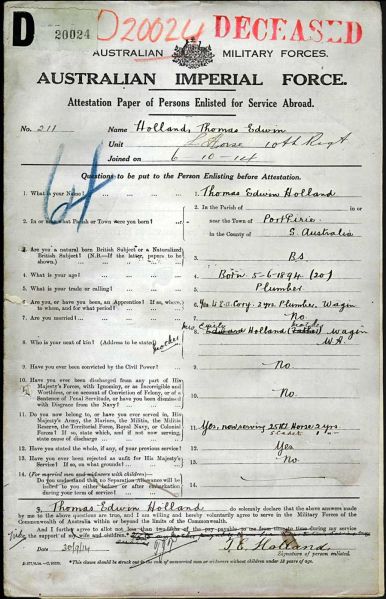 D 20024 D20024 DECEASED
AUSTRALIAN MILITARY FORCES.
AUSTRALIAN IMPERIAL FORCE.
Attestation Paper of Persons Enlisted for Service Abroad.
No. 211 Name Holland, Thomas Edwin
Unit L Horse 10th Regt
Joined on 6 10 14
Questions to be put to the Person Enlisting before Attestation.
1. What is your Name? 1. Thomas Edwin Holland
2. In or near what Parish or Town were you born? 2. In the Parish of in or
near the Town of Port Pirie
in the County of S. Australia
3. Are you a natural born British Subject or a Naturalized
British Subject? (N.B.—If the latter, papers to be
shown.) 3. B.S.
4. What is your age? 4. Born 5-6-1894 (20)
5. What is your trade or calling? 5. Plumber
6. Are you, or have you been, an Apprentice? If so, where,
to whom, and for what period? 6. Yes 2 yrs. Plumber. Wagin
7. Are you married? 7. No.
8. Who is your next of kin? (Address to be stated) mother 8. Edward Holland (Father) Wagin
W.A.
9. Have you ever been convicted by the Civil Power? 9. No
10. Have you ever been discharged from any part of His
Majesty's Forces, with Ignominy, or as Incorrigible and
Worthless, or on account of Conviction of Felony, or of a
Sentence of Penal Servitude, or have you been dismissed
with Disgrace from the Navy? 10. No.
11. Do you now belong to, or have you ever served in, His
Majesty's Army, the Marines, the Militia, the Militia
Reserve, the Territorial Force, Royal Navy, or Colonial
Forces? If so, state which, and if not now serving,
state cause of discharge 11. Yes, now serving 25th L Horse 2 yrs
12. Have you stated the whole, if any, of your previous service? 12. Yes
13. Have you ever been rejected as unfit for His Majesty's
Service? If so, on what grounds? 13. No
14. (For married men and widowers with children)—
Do you understand that no Separation Allowance will be
issued to you either before or after embarkation
during your term of service? 14.
I, Thomas Edwin Holland do solemnly declare that the above answers
made by me to the above questions are true, and I am willing and hereby voluntarily agree to serve in the Military Forces of the
Commonwealth of Australia within or beyond the limits of the Commonwealth.
And I further agree to allot not less than of the pay payable to me from time to time during my service
for the support of my wife and children.
Date T. E. Holland
Signature of person enlisted.
*This clause should be struck out in the case of unmarried men or widowers without children under 18 years of age.